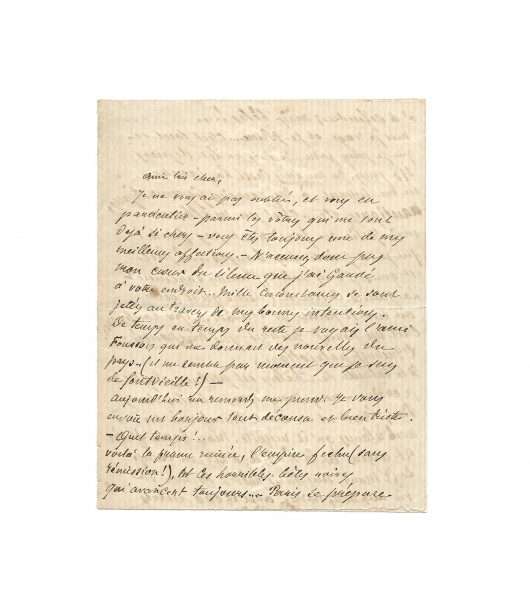 ami très cher,
Je ne vous ai pas oublié, et vous en
particulier – parmi les vôtres qui me sont
déjà si chers – vous êtes toujours une de mes
meilleures affections. – N'accusez donc pas
mon cœur du silence que j'ai gardé
à votre endroit... Mille circonstances se sont
jetées au travers de mes bonnes intentions.
De temps en temps du reste je voyais l'ami
qui me donnait des nouvelles du
pays.. (il me semble par moment que je suis
de fontvieille!) –
aujourd'hui un remords me prend. Je vous
envoie un bonjour tout décousu et bien triste.
– Quel temps!..
voilà la france ruinée, l'empire fichu (sans
rémission!), et ces horribles bêtes noires
qui avancent toujours... Paris se prépare